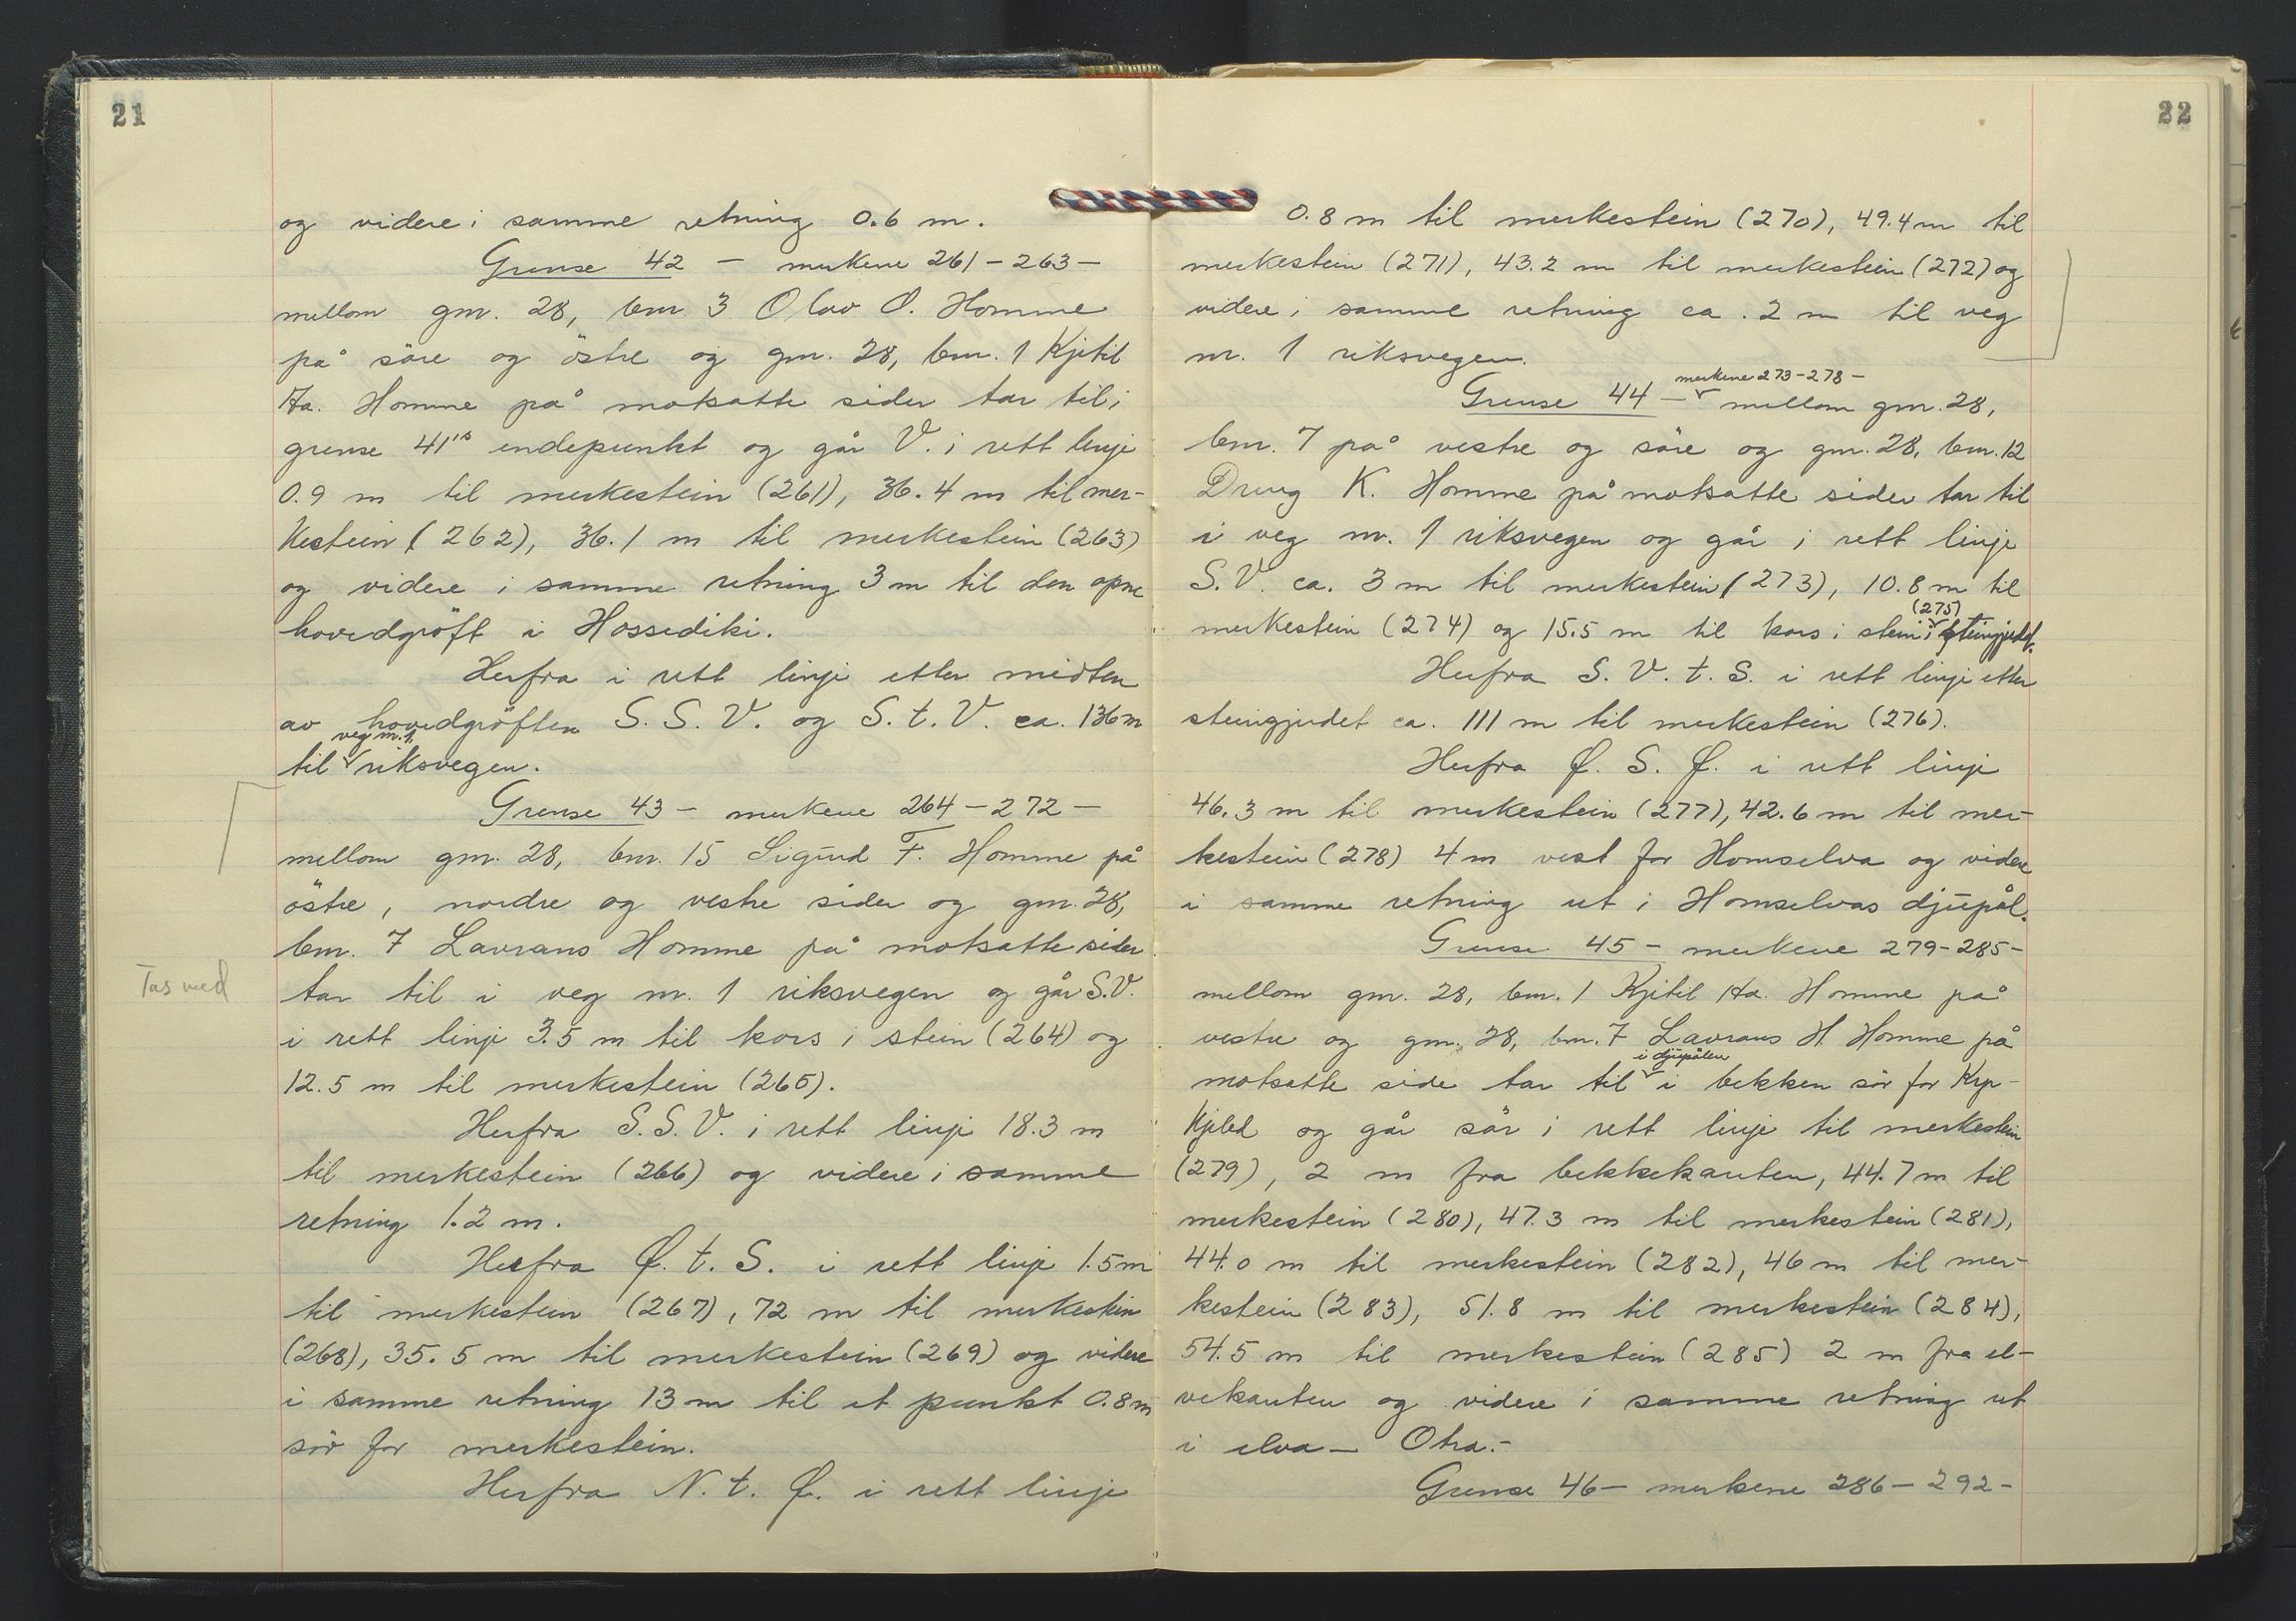 21
og videre i samme retning 0.6 m.
Grense 42 – merkene 261–263–
mellom gnr. 28, bnr. 3 Olav O. Homme
på söre og östre og gnr. 28, bnr. 1 Kjetil
Aa. Homme på motsatte sider tar til i
grense 41's endepunkt og går V. i rett linje
0.9 m til merkestein (261), 36.4 m til mer-
kestein (262), 36.1 m til merkestein (263)
og videre i samme retning 3 m til den opne
hovedgröft i Hossediki.
Herfra i rett linje etter midten
av hovedgröften S. S. V. og S. t. V. ca. 136 m
veg nr. 1
til riksvegen.
Grense 43 – merkene 264–272 –
mellom gnr. 28, bnr. 15 Sigurd F. Homme på
östre, nordre og vestre sider og gnr. 28,
bnr. 7 Lavrans Homme på motsatte sider
Tas med
tar til i veg nr. 1 riksvegen og går S.V.
i rett linje 3.5 m til kors i stein (264) og
12.5 m til merkestein (265).
Herfra S. S. V. i rett linje 18.3 m
til merkestein (266) og videre i samme
retning 1.2 m.
Herfra Ø. t. S. i rett linje 1.5 m
til merkestein (267), 72 m til merkestein
(268), 35.5 m til merkestein (269) og videre
i samme retning 13 m til et punkt 0.8 m
sör for merkestein.
Herfra N. t. Ø. i rett linje
22
0.8 m til merkestein (270), 49.4 m til
merkestein (271), 43.2 m til merkestein (272) og
videre i samme retning ca. 2 m til veg
nr. 1 riksvegen.
merkene 273–278–
Grense 44 – mellom gnr. 28,
bnr. 7 på vestre og söre og gnr. 28, bnr. 12
Dreng K. Homme på motsatte sider tar til
i veg nr. 1 riksvegen og går i rett linje
S. V. ca. 3 m til merkestein (273), 10.8 m til
(275)
merkestein (274) og 15.5 m til kors i stein i steingjerdet.
Herfra S. V. t. S. i rett linje etter
steingjerdet ca. 111 m til merkestein (276).
Herfra Ø. S. Ø. i rett linje
46.3 m til merkestein (277), 42.6 m til mer-
kestein (278) 4 m vest for Homselva og videre
i samme retning ut i Homselvas djupål.
Grense 45 – merkene 279–285–
mellom gnr. 28, bnr. 1 Kjetil Aa. Homme på
vestre og gnr. 28, bnr. 7 Lavrans H. Homme på
i djupålen
motsatte side tar til i bekken sör for
og går sör i rett linje til merkestein
(279), 2 m fra bekkekanten, 44.7 m til
merkestein (280), 47.3 m til merkestein (281),
44.0 m til merkestein (282), 46 m til mer-
kestein (283), 51.8 m til merkestein (284),
54.5 m til merkestein (285) 2 m fra el-
vekanten og videre i samme retning ut
i elva – Otra.–
Grense 46 – merkene 286–292–